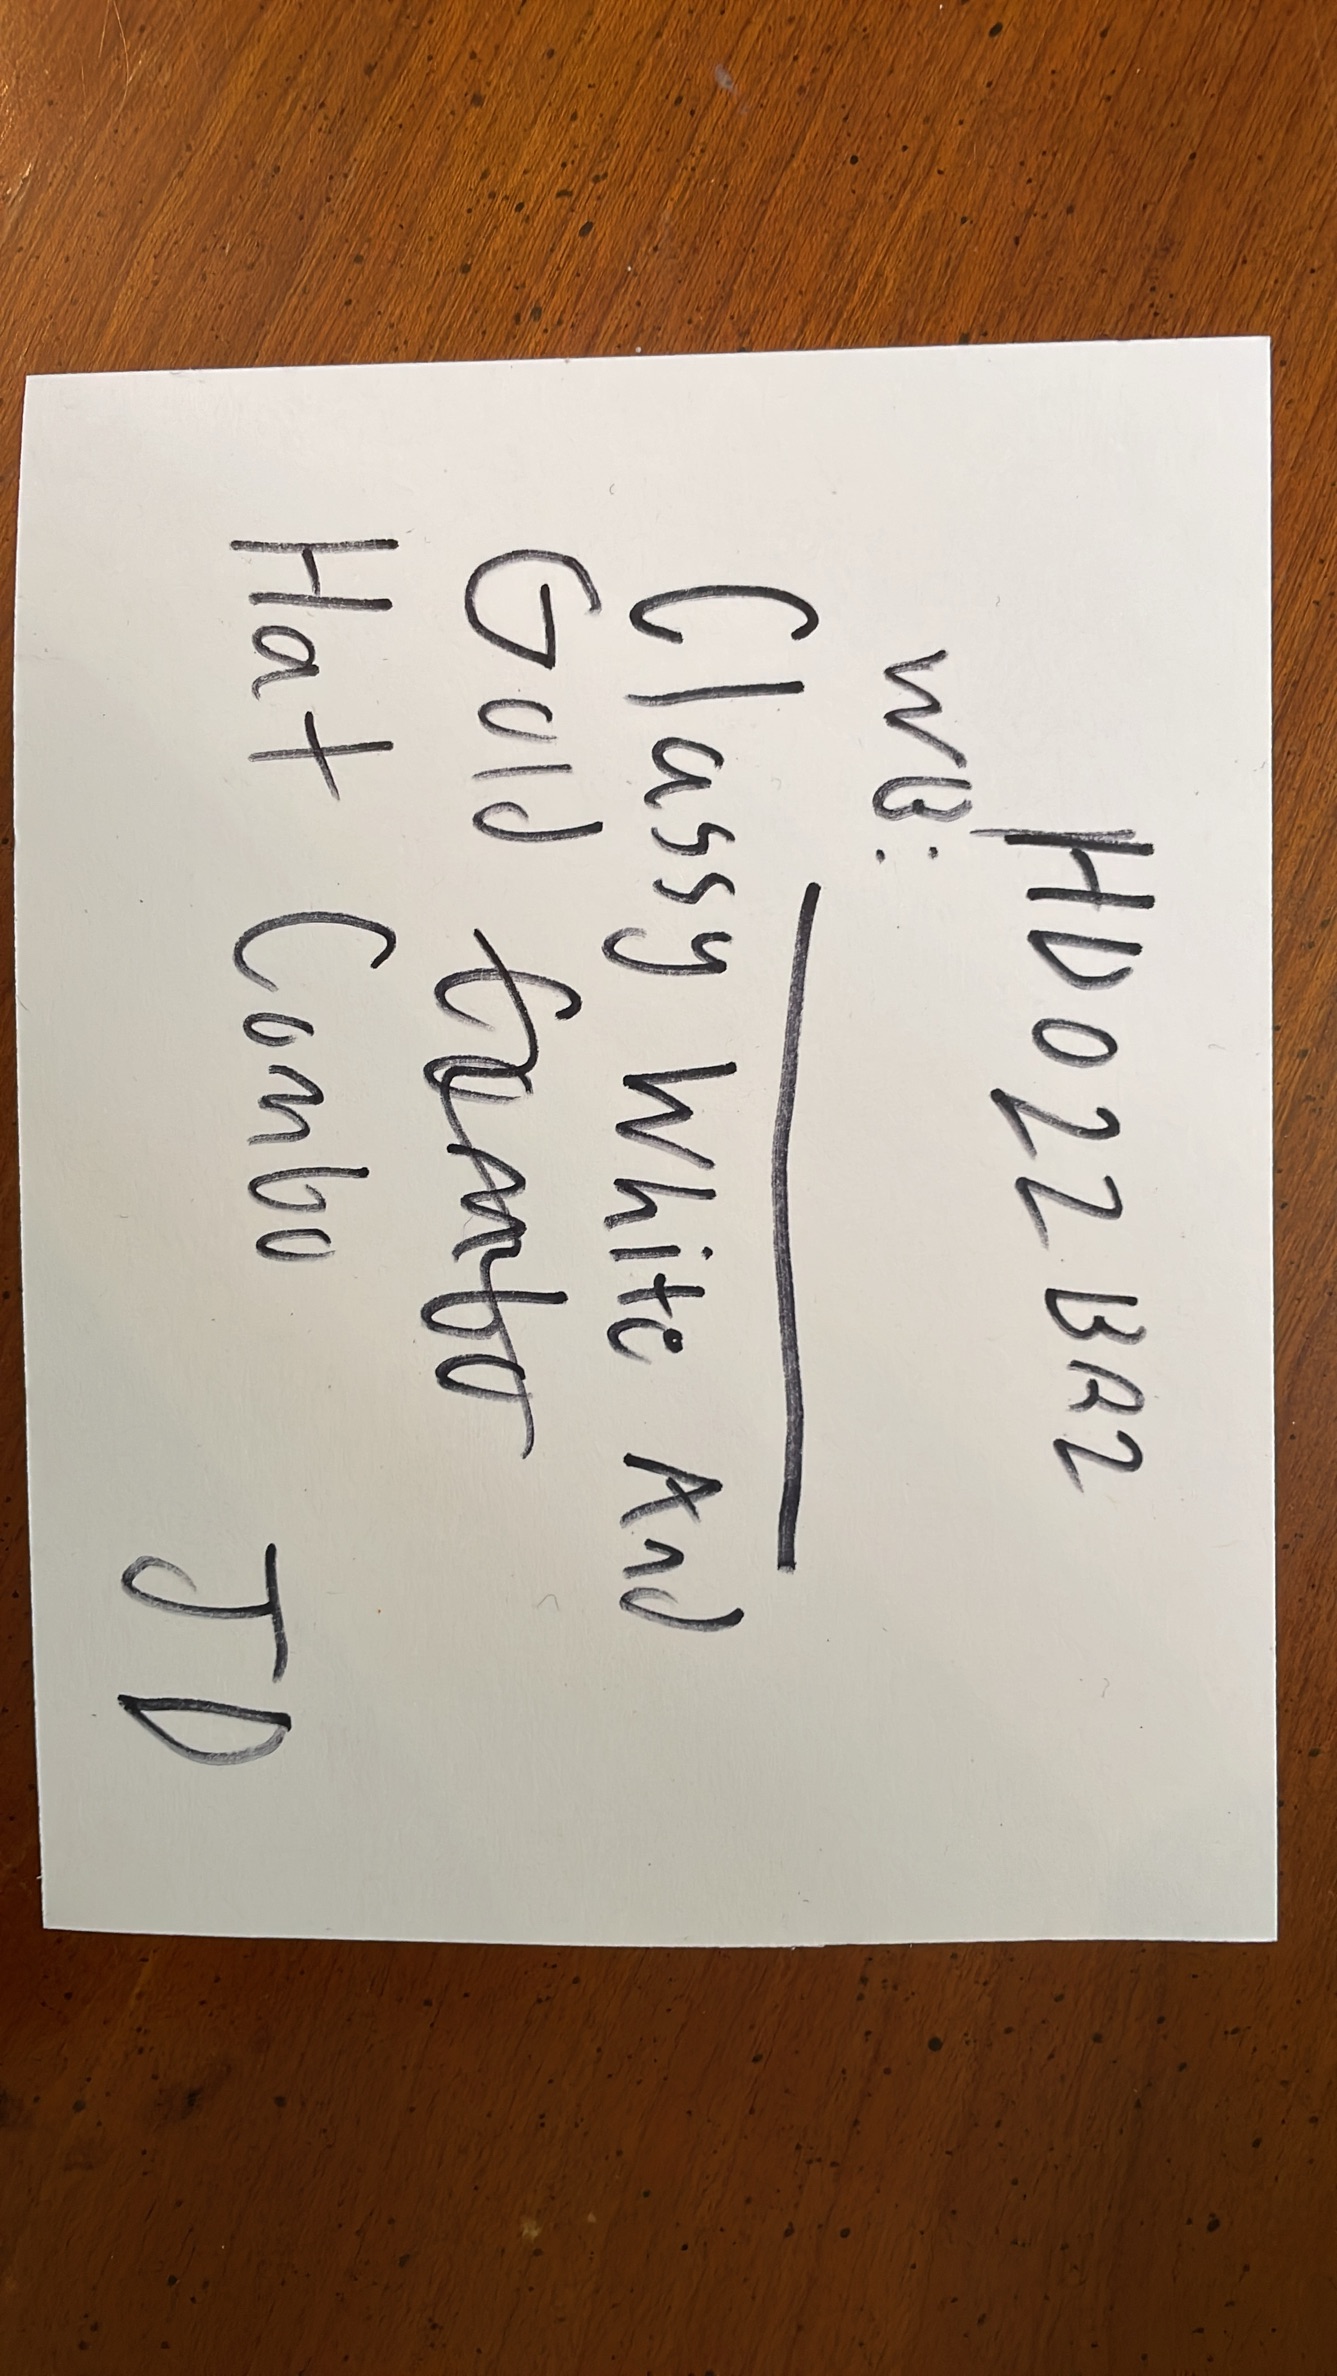 HD022BAZ
WB:
Classy White And
Gold Combo
Hat Combo
JD